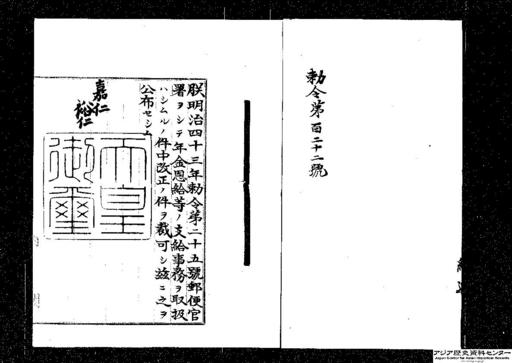 勅令第百二十二號
朕明治四十三年勅令第二十五號郵便官
署ヲシテ年金恩給等ノ支給事務ヲ取扱
ハシムルノ件中改正ノ件ヲ裁可シ茲ニ之ヲ
公布セシム
嘉仁
裕仁
天皇
御璽
アジア歴史資料センター
Japan Center for Asian Historical Records